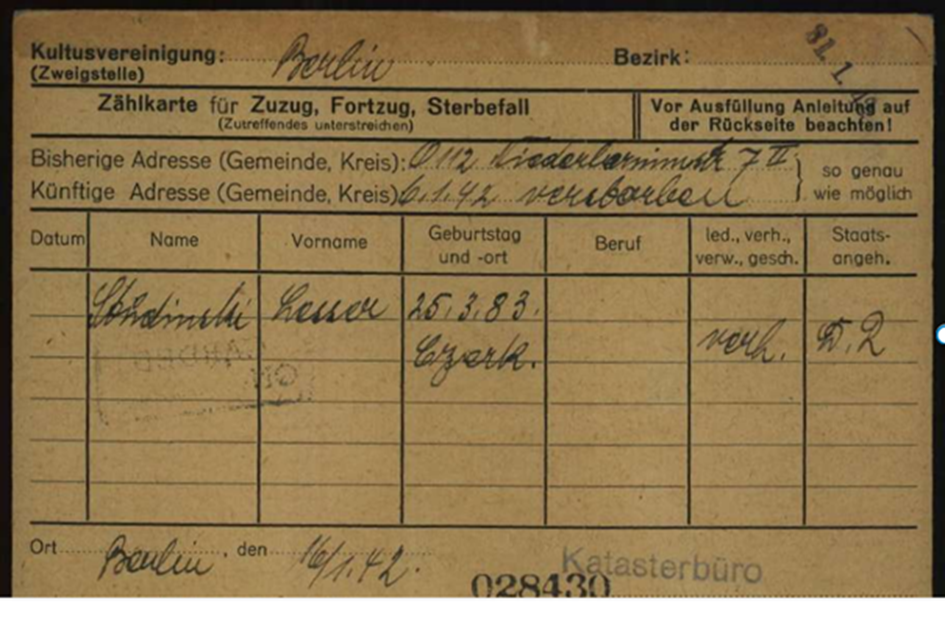 Kultusvereinigung: Berlin Bezirk:
(Zweigstelle)
Zählkarte für Zuzug, Fortzug, Sterbefall
(Zutreffendes unterstreichen)
Vor Ausfüllung Anleitung auf
der Rückseite beachten!
Bisherige Adresse (Gemeinde, Kreis): O 112 Niederbarnimstr 7 II
Künftige Adresse (Gemeinde, Kreis) 6.1.42 verstorben
so genau
wie möglich
Datum Name Vorname Geburtstag und -ort Beruf led., verh., verw., gesch. Staats-angeh.
Lesser 25.3.83.
Czersk. verh. D.
Ort Berlin, den 16/1.42.
Katasterbüro
028430